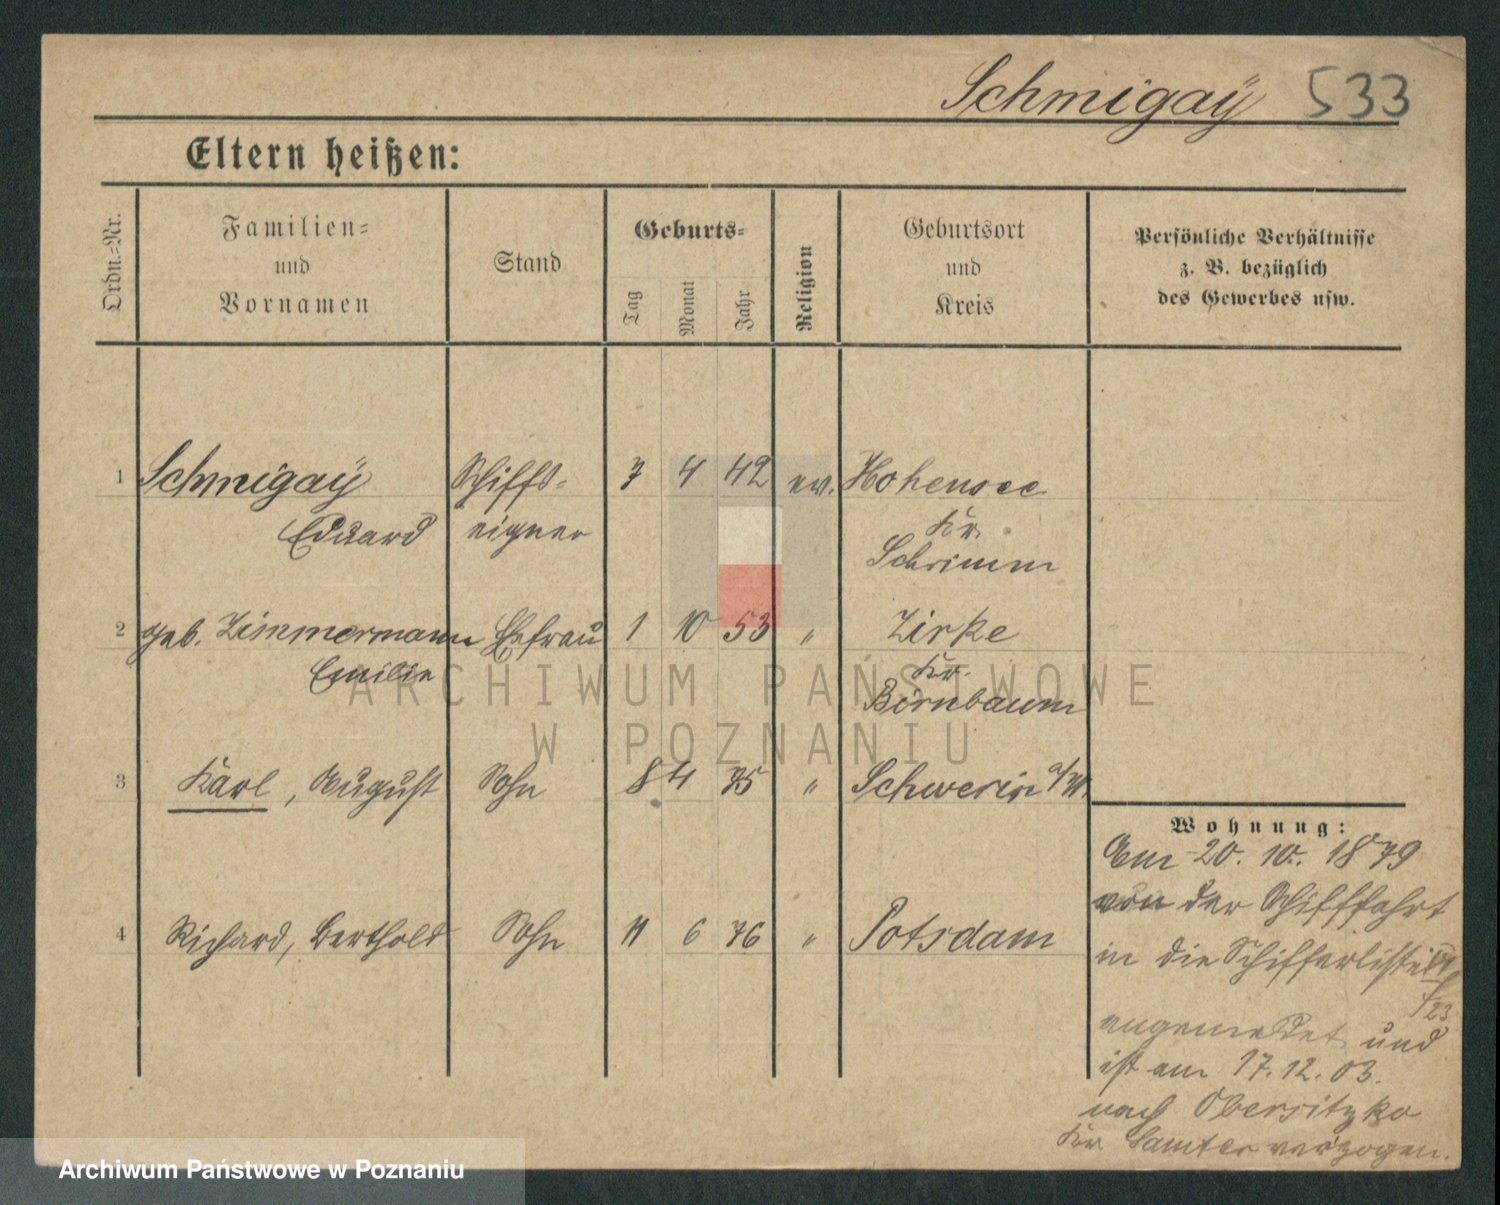 Schmigaÿ 533
Eltern heißen:
Ordn.-Nr.
Familien-
und
Vornamen
Stand
Geburts-
Tag
Monat
Jahr
Religion
Geburtsort
und
Kreis
Persönliche Verhältnisse
z. B. bezüglich
des Gewerbes usw.
1 Schmigaÿ Schiffs- 7 4 42 ev. Hohensee
Eduard eigner Kr.
Schrimm
2 geb. Zimmermann Ehefrau 1 10 53 " Zirke
Emilie Kr.
Birnbaum
3 Karl, August Sohn 8 4 75 " Schwerin a/W.
4 Richard, Berthold Sohn 11 6 76 " Potsdam
Wohnung:
Am 20. 10. 1879
von der Schifffahrt
in die Schifferliste
23
angemeldet und
ist am 17. 12. 03.
nach Obersitzko
Kr. Samter verzogen.
ARCHIWUM PAŃSTWOWE
W POZNANIU
Archiwum Państwowe w Poznaniu